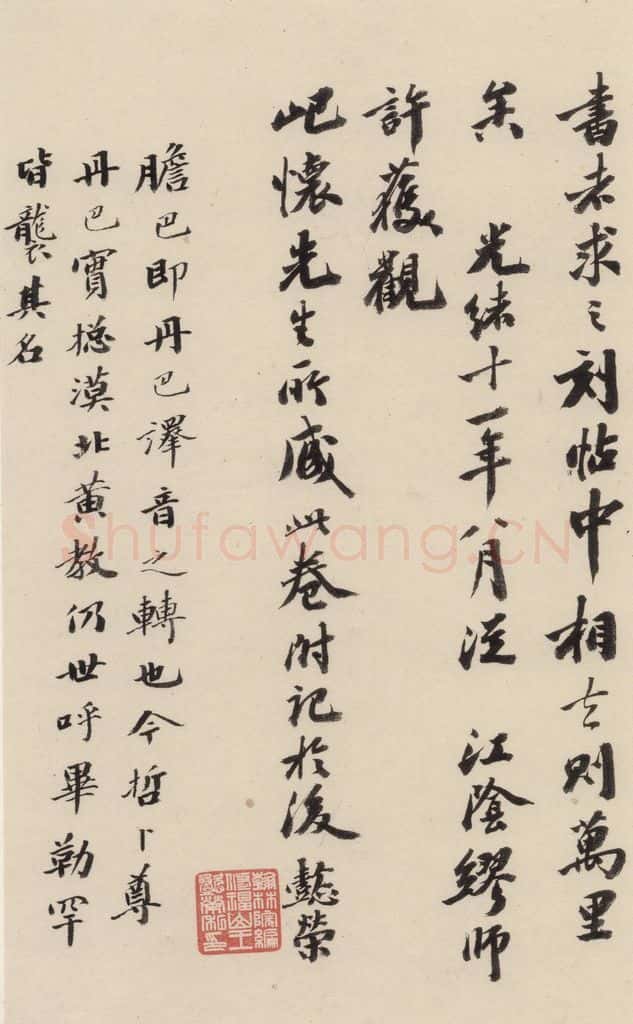 書者求之刻帖中相去則萬里
矣 光緒十一年八月從 江陰繆師
許獲觀
屺懷先生所藏此卷附記於後 懿榮
膽巴即丹巴譯音之轉也今哲卜尊
丹巴實捴漠北黃教仍世呼畢勒罕
皆襲其名
翰林院編
修福山王
懿榮私印
Shufawang.CN